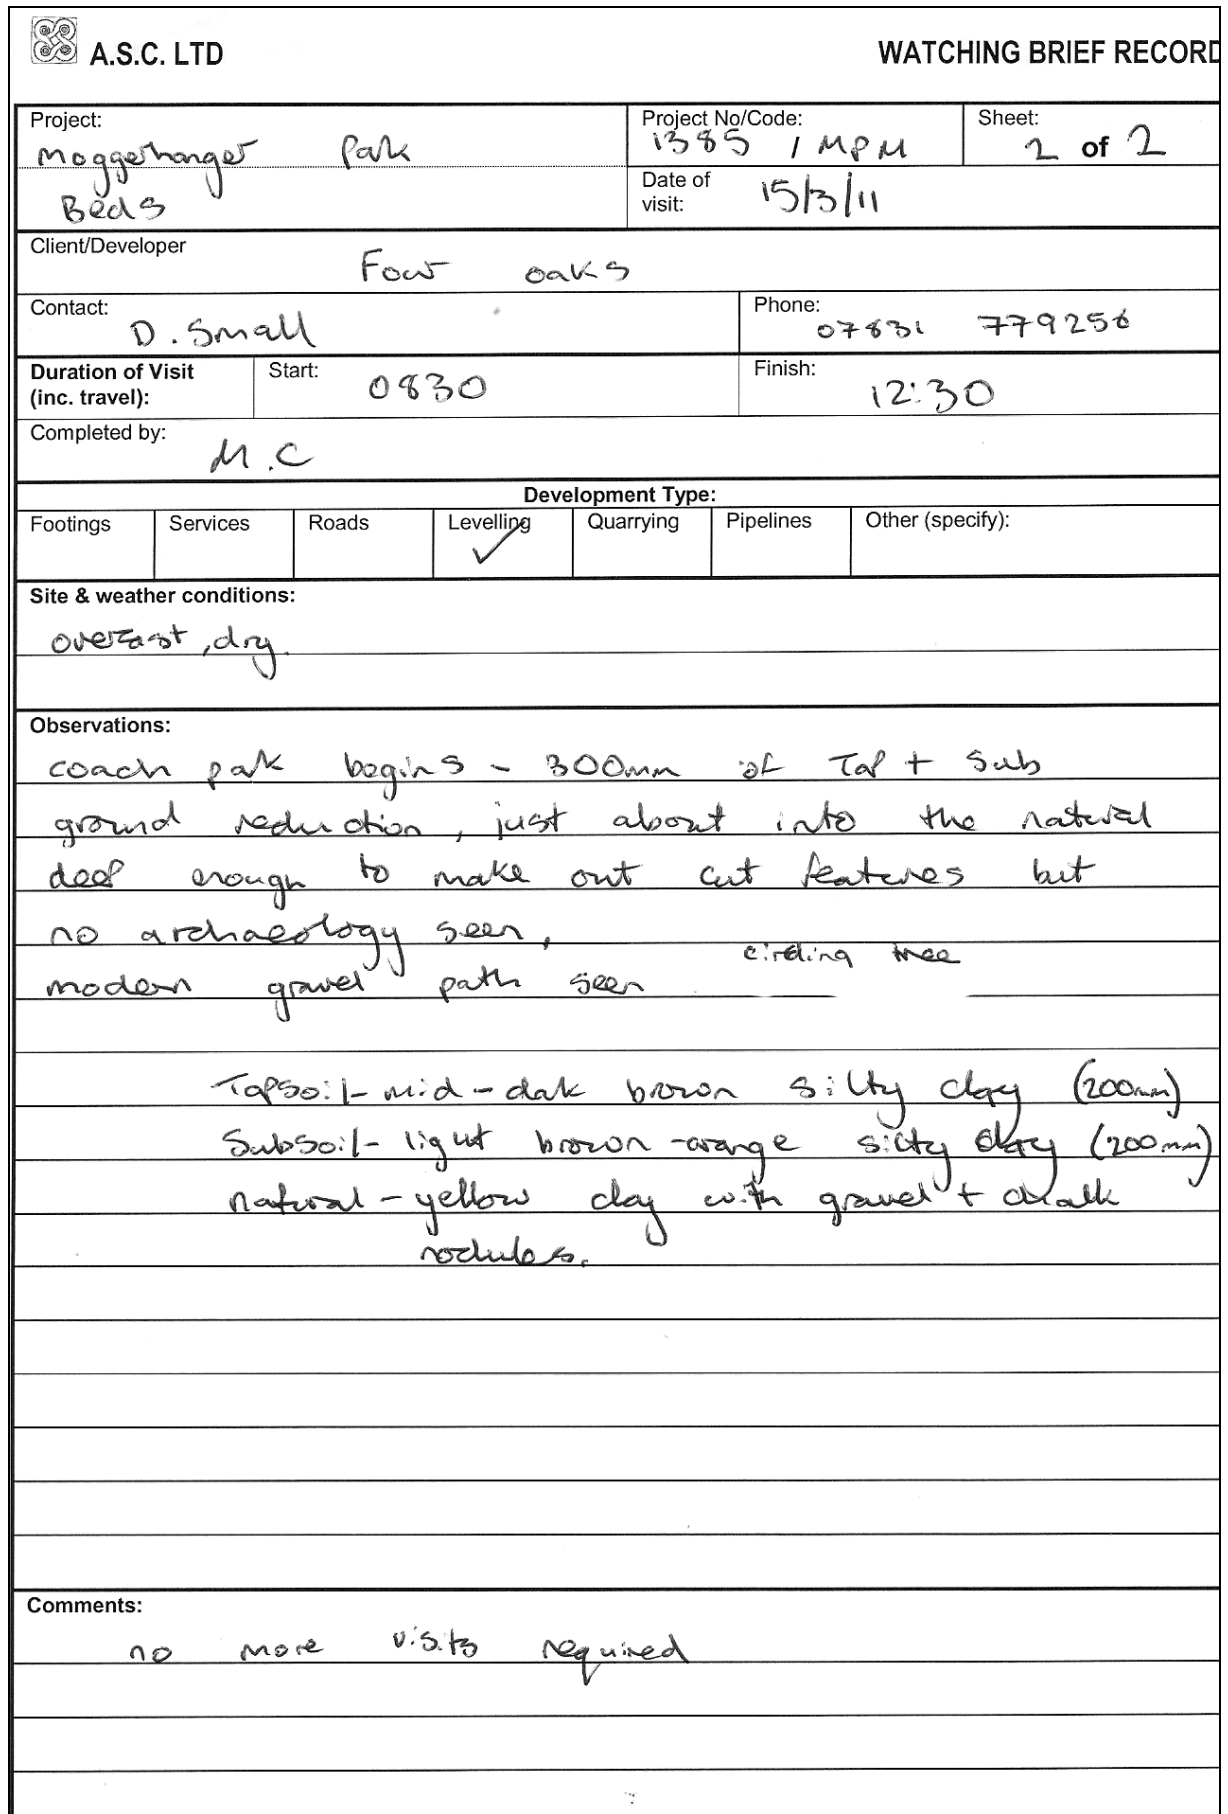 A.S.C. LTD
WATCHING BRIEF RECORD
Project:
Moggerhanger Park
Beds
Project No/Code:
1385 / MPM
Sheet:
2 of 2
Date of
visit:
15/3/11
Client/Developer
Four oaks
Contact:
D. Small
Phone:
07831 779256
Duration of Visit
(inc. travel):
Start:
0830
Finish:
12:30
Completed by:
M.C
Development Type:
Footings Services Roads Levelling Quarrying Pipelines Other (specify):
Site & weather conditions:
overcast, dry.
Observations:
coach park begins - 300mm of Top + Sub
ground reduction, just about into the natural
deep enough to make out cut features but
no archaeology seen,
modern gravel path seen circling tree
Topsoil - mid-dark brown silty clay (200mm)
Subsoil - light brown-orange silty clay (200mm)
natural - yellow clay with gravel + chalk
nodules.
Comments:
no more visits required